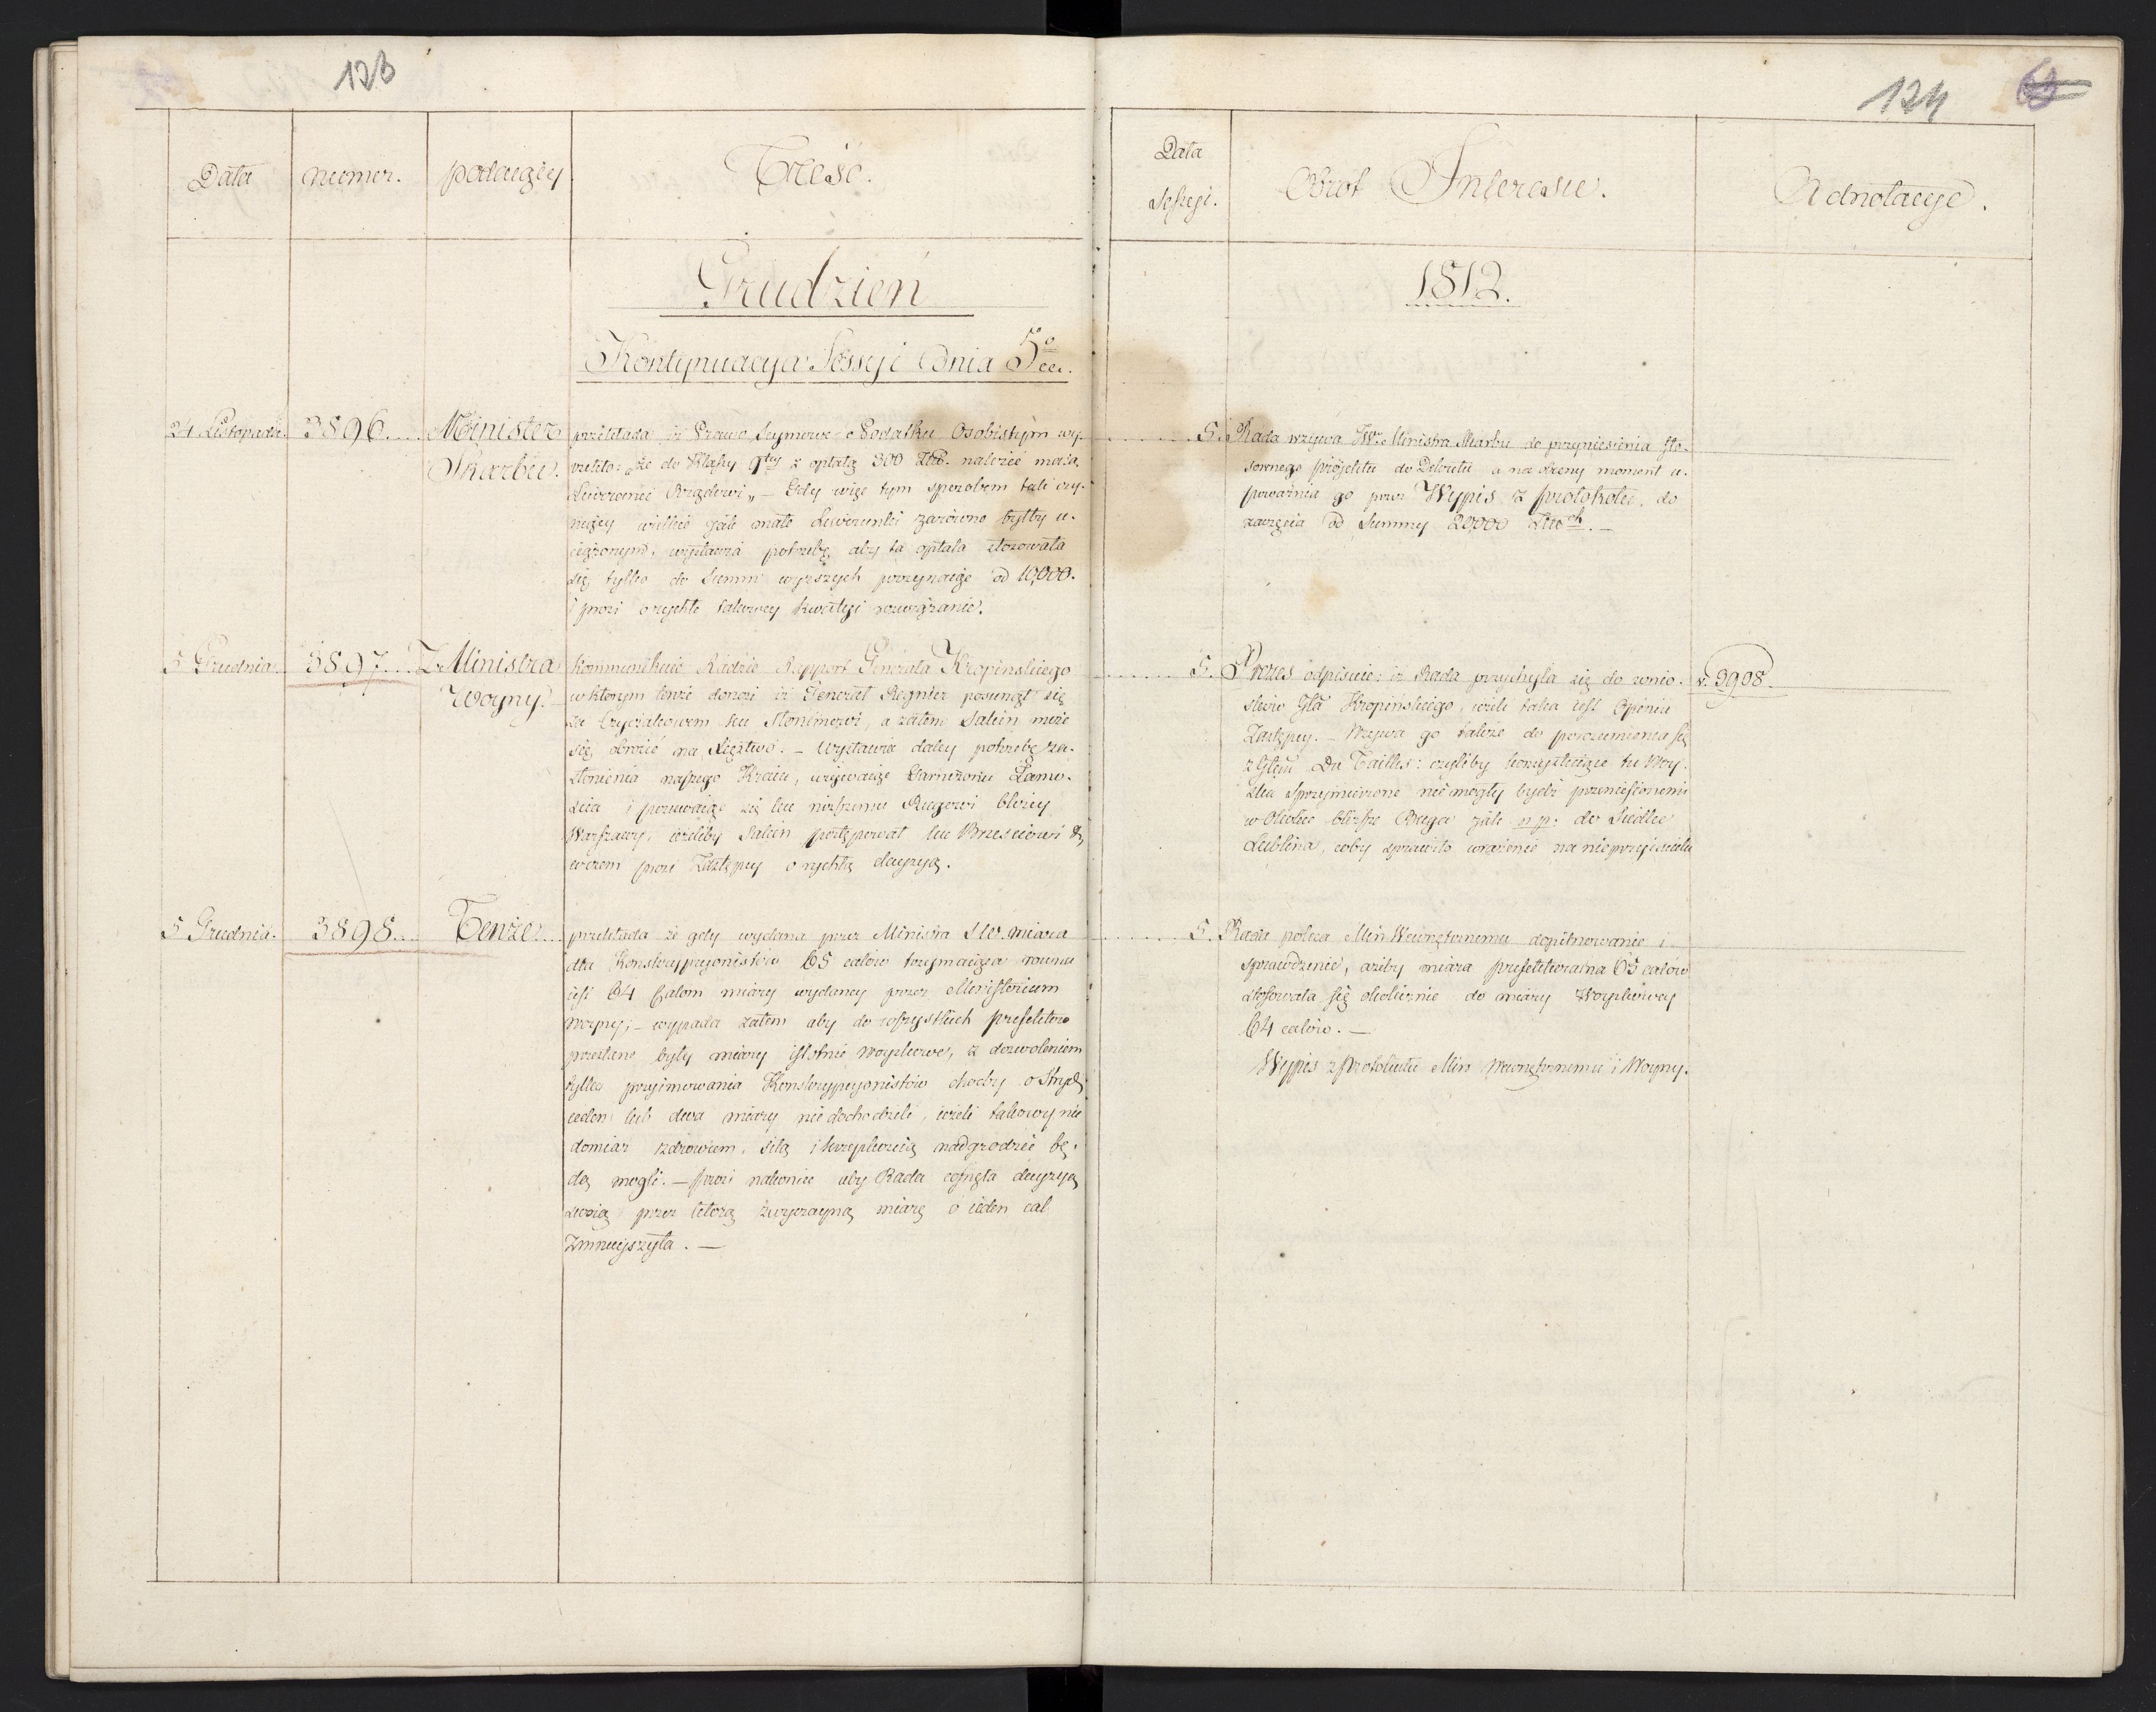 123
Data
numer.
podaiący
Treść.
Grudzień
Kontynuacya Sessyi Dnia 5go
24 Listopada. 3896. Minister
Skarbu.
przekłada iż Prawo Seymowe o Podatku Osobistym wy-
że do Klassy 9tey z opłatą 300 Złłp. należeć maią
Liweranci Rządowi" — Gdy więc tym sposobem tak czy-
niący wielkie jak małe Liwerunki zarówno byłby u-
ciążonym, wystawia potrzebę, aby ta opłata stosowała
się tylko do Summ wyższych poczynaiąc od 10,000.
i prosi o rychłe takowey kwestyi rozwiązanie.
5 Grudnia 3897. Z. Ministra
Woyny.
kommunikuie Radzie Rapport Generała Kropinskiego
w którym tenże donosi iż Generał Regnier posunął się
ku Słonimowi, a zatem Saken może
się obrócić na Xięstwo. — Wystawia daley potrzebę za-
słonienia naszego Kraiu, używaiąc Garnizonu Zamo-
ścia i posuwaiąc się ku niższemu Bugowi bliżey
Warszawy, ieżeliby Saken postępował ku Brześciowi &
w czem prosi Zastępcy o rychłą decyzyą.
5 Grudnia. 3898. Tenże
przekłada że gdy wydana przez Ministra S W. miara
dla Konskrypcyonistów 65 calów trzymaiąca równa
iest 64 Calom miary wydaney przez Ministerium
Woyny; — wypada zatem aby do wszystkich prefektów
przesłane były miary istotnie woyskowe, z dozwoleniem
tylko przyimowania Konskrypcyonistów choćby o Strych
ieden lub dwa miary nie dochodzili, ieżeli takowy nie
domiar zdrowiem, siłą i krzepkością nadgrodzić bę-
dą mogli. — prosi nakoniec aby Rada cofnęła decyzyą
swoią przez którą zwyczayną miarę o ieden cal
zmnieyszyła. —
124 63
Data
Sessyi.
Obrot Interesu.
Adnotacye.
1812.
5. Rada wzywa JW. Ministra Skarbu do przyniesienia sto-
sownego projektu do Dekretu a na moment u-
poważnia go przez Wypis z protokołu, do
zaczęcia od Summy 20,000 Złłch. —
5. Prezes odpisuie: iż Rada przychyla się do wnio- v. 3908.
sków Gła Kropińskiego, ieżeli taka iest Opinia
Zastępcy. — Wzywa go także do porozumienia się
z Głem Du Taillis: czyliby tu Woy-
ska Sprzymierzone nie mogły bydź przeniesionemi
w okolice bliższe Buga jak n.p: do Siedlec
Lublina, coby sprawiło wrażenie na nieprzyiacielu
5. Rada poleca Min Wewnętrznemu dopilnowanie i
sprawdzenie, ażeby miara prefekturalna 65 calów
stosowała się okolicznie do miary Woyskowey
64 calów. —
Wypis z Protokułu Min Wewnętrznemu i Woyny.